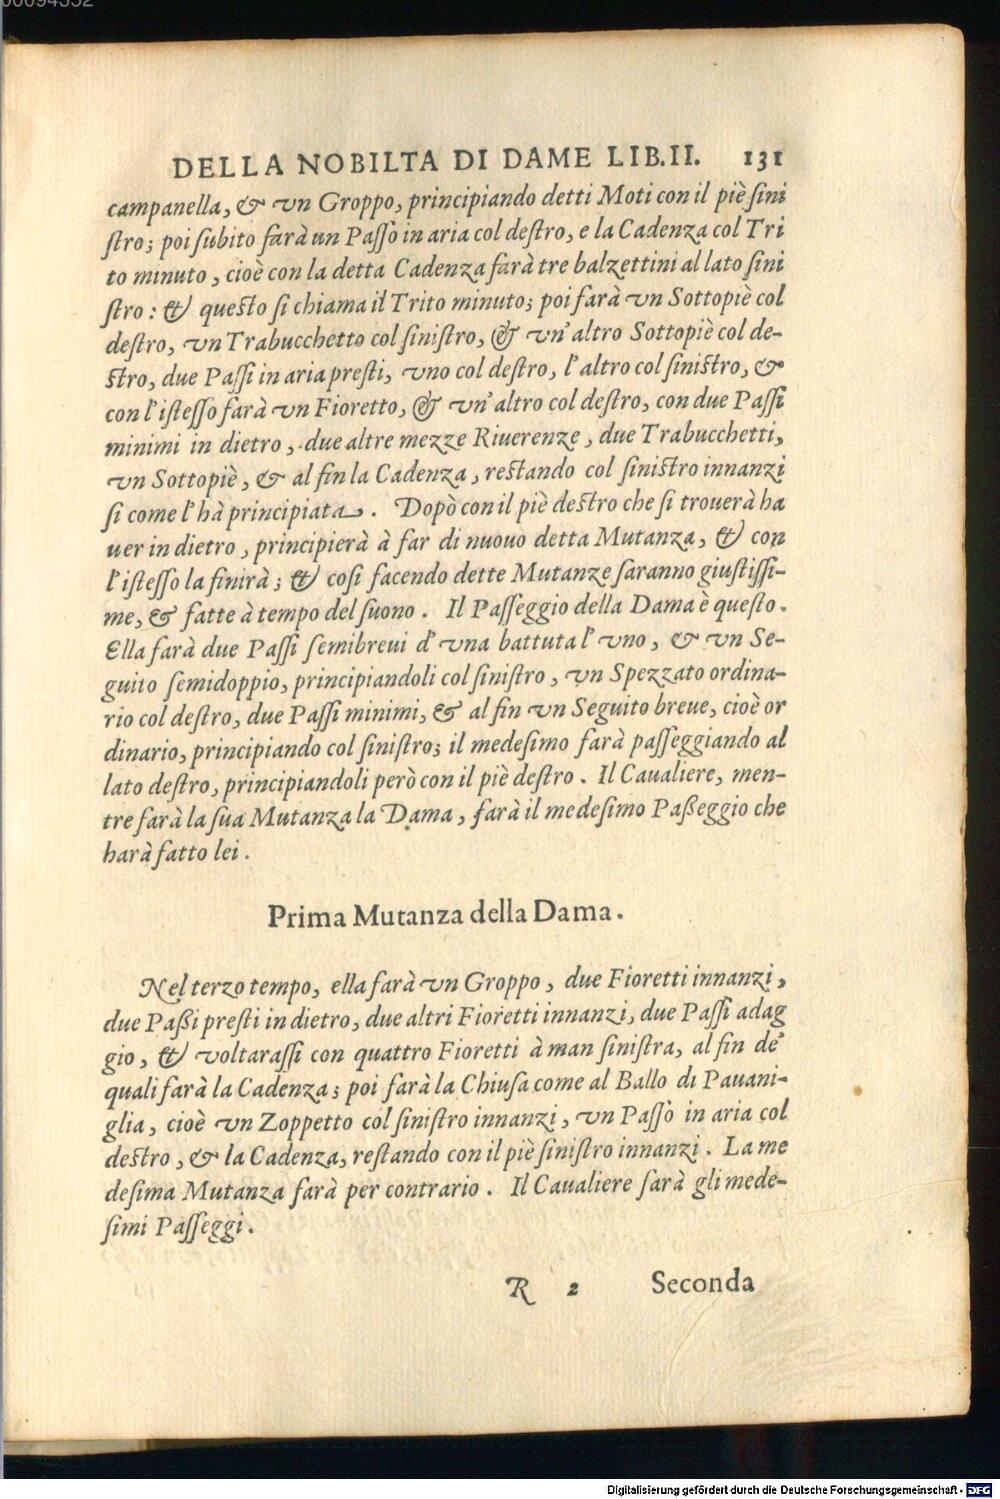 DELLA NOBILTA DI DAME LIB.II. 131
campanella, & vn Groppo, principiando detti Moti con il piè ſini
ſtro; poi ſubito farà un Paſſo in aria col deſtro, e la Cadenza col Tri
to minuto, cioè con la detta Cadenza farà tre balzettini al lato ſini
ſtro: & queſto ſi chiama il Trito minuto; poi farà vn Sottopiè col
deſtro, vn Trabucchetto col ſiniſtro, & vn'altro Sottopiè col de-
ſtro, due Paſſi in aria preſti, vno col deſtro, l'altro col ſiniſtro, &
con l'iſteſſo farà vn Fioretto, & vn'altro col deſtro, con due Paſſi
minimi in dietro, due altre mezze Riuerenze, due Trabucchetti,
vn Sottopiè, & al fin la Cadenza, reſtando col ſiniſtro innanzi
ſi come l'hà principiata. Dopò con il piè deſtro che ſi trouerà ha
uer in dietro, principierà à far di nuouo detta Mutanza, & con
l'iſteſſo la finirà; & coſi facendo dette Mutanze ſaranno giuſtiſſi-
me, & fatte à tempo del ſuono. Il Paſſeggio della Dama è queſto.
Ella farà due Paſſi ſemibreui d'vna battuta l'vno, & vn Se-
guito ſemidoppio, principiandoli col ſiniſtro, vn Spezzato ordina-
rio col deſtro, due Paſſi minimi, & al fin vn Seguito breue, cioè or
dinario, principiando col ſiniſtro; il medeſimo farà paſſeggiando al
lato deſtro, principiandoli però con il piè deſtro. Il Caualiere, men-
tre farà la ſua Mutanza la Dama, farà il medeſimo Paßeggio che
harà fatto lei.
Prima Mutanza della Dama.
Nel terzo tempo, ella farà vn Groppo, due Fioretti innanzi,
due Paßi preſti in dietro, due altri Fioretti innanzi, due Paſſi adag
gio, & voltaraſſi con quattro Fioretti à man ſiniſtra, al fin de'
quali farà la Cadenza; poi farà la Chiuſa come al Ballo di Pauani-
glia, cioè vn Zoppetto col ſiniſtro innanzi, vn Paſſo in aria col
deſtro, & la Cadenza, reſtando con il piè ſiniſtro innanzi. La me
deſima Mutanza farà per contrario. Il Caualiere farà gli mede-
ſimi Paſſeggi.
R 2 Seconda
Digitalisierung gefördert durch die Deutsche Forschungsgemeinschaft - DFG